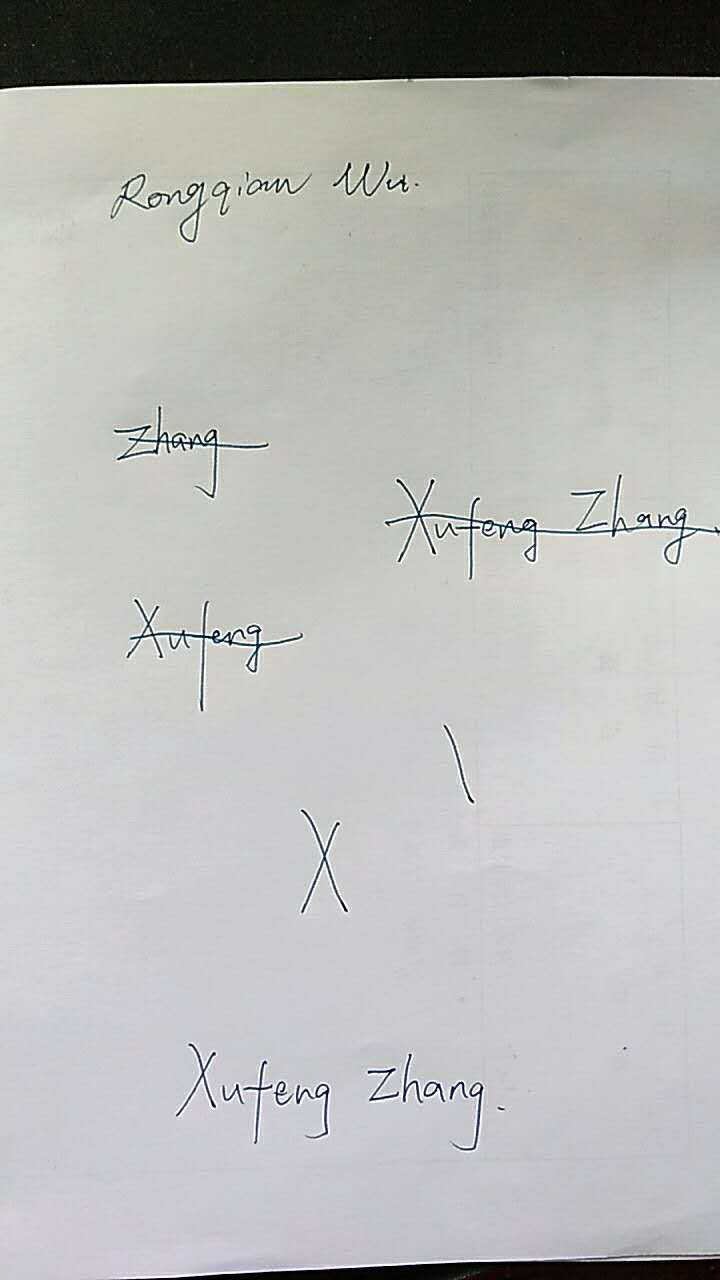 Rongqian Wu.
Zhang
Xufeng Zhang
Xufeng
\
X
Xufeng Zhang.